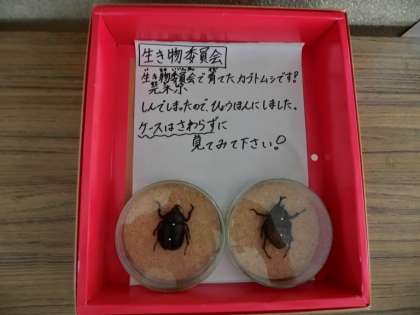 生き物委員会
生き物委員会で育てたカブトムシです!
しんでしまったので、ひょうほんにしました。
ケースはさわらずに
見てみて下さい!